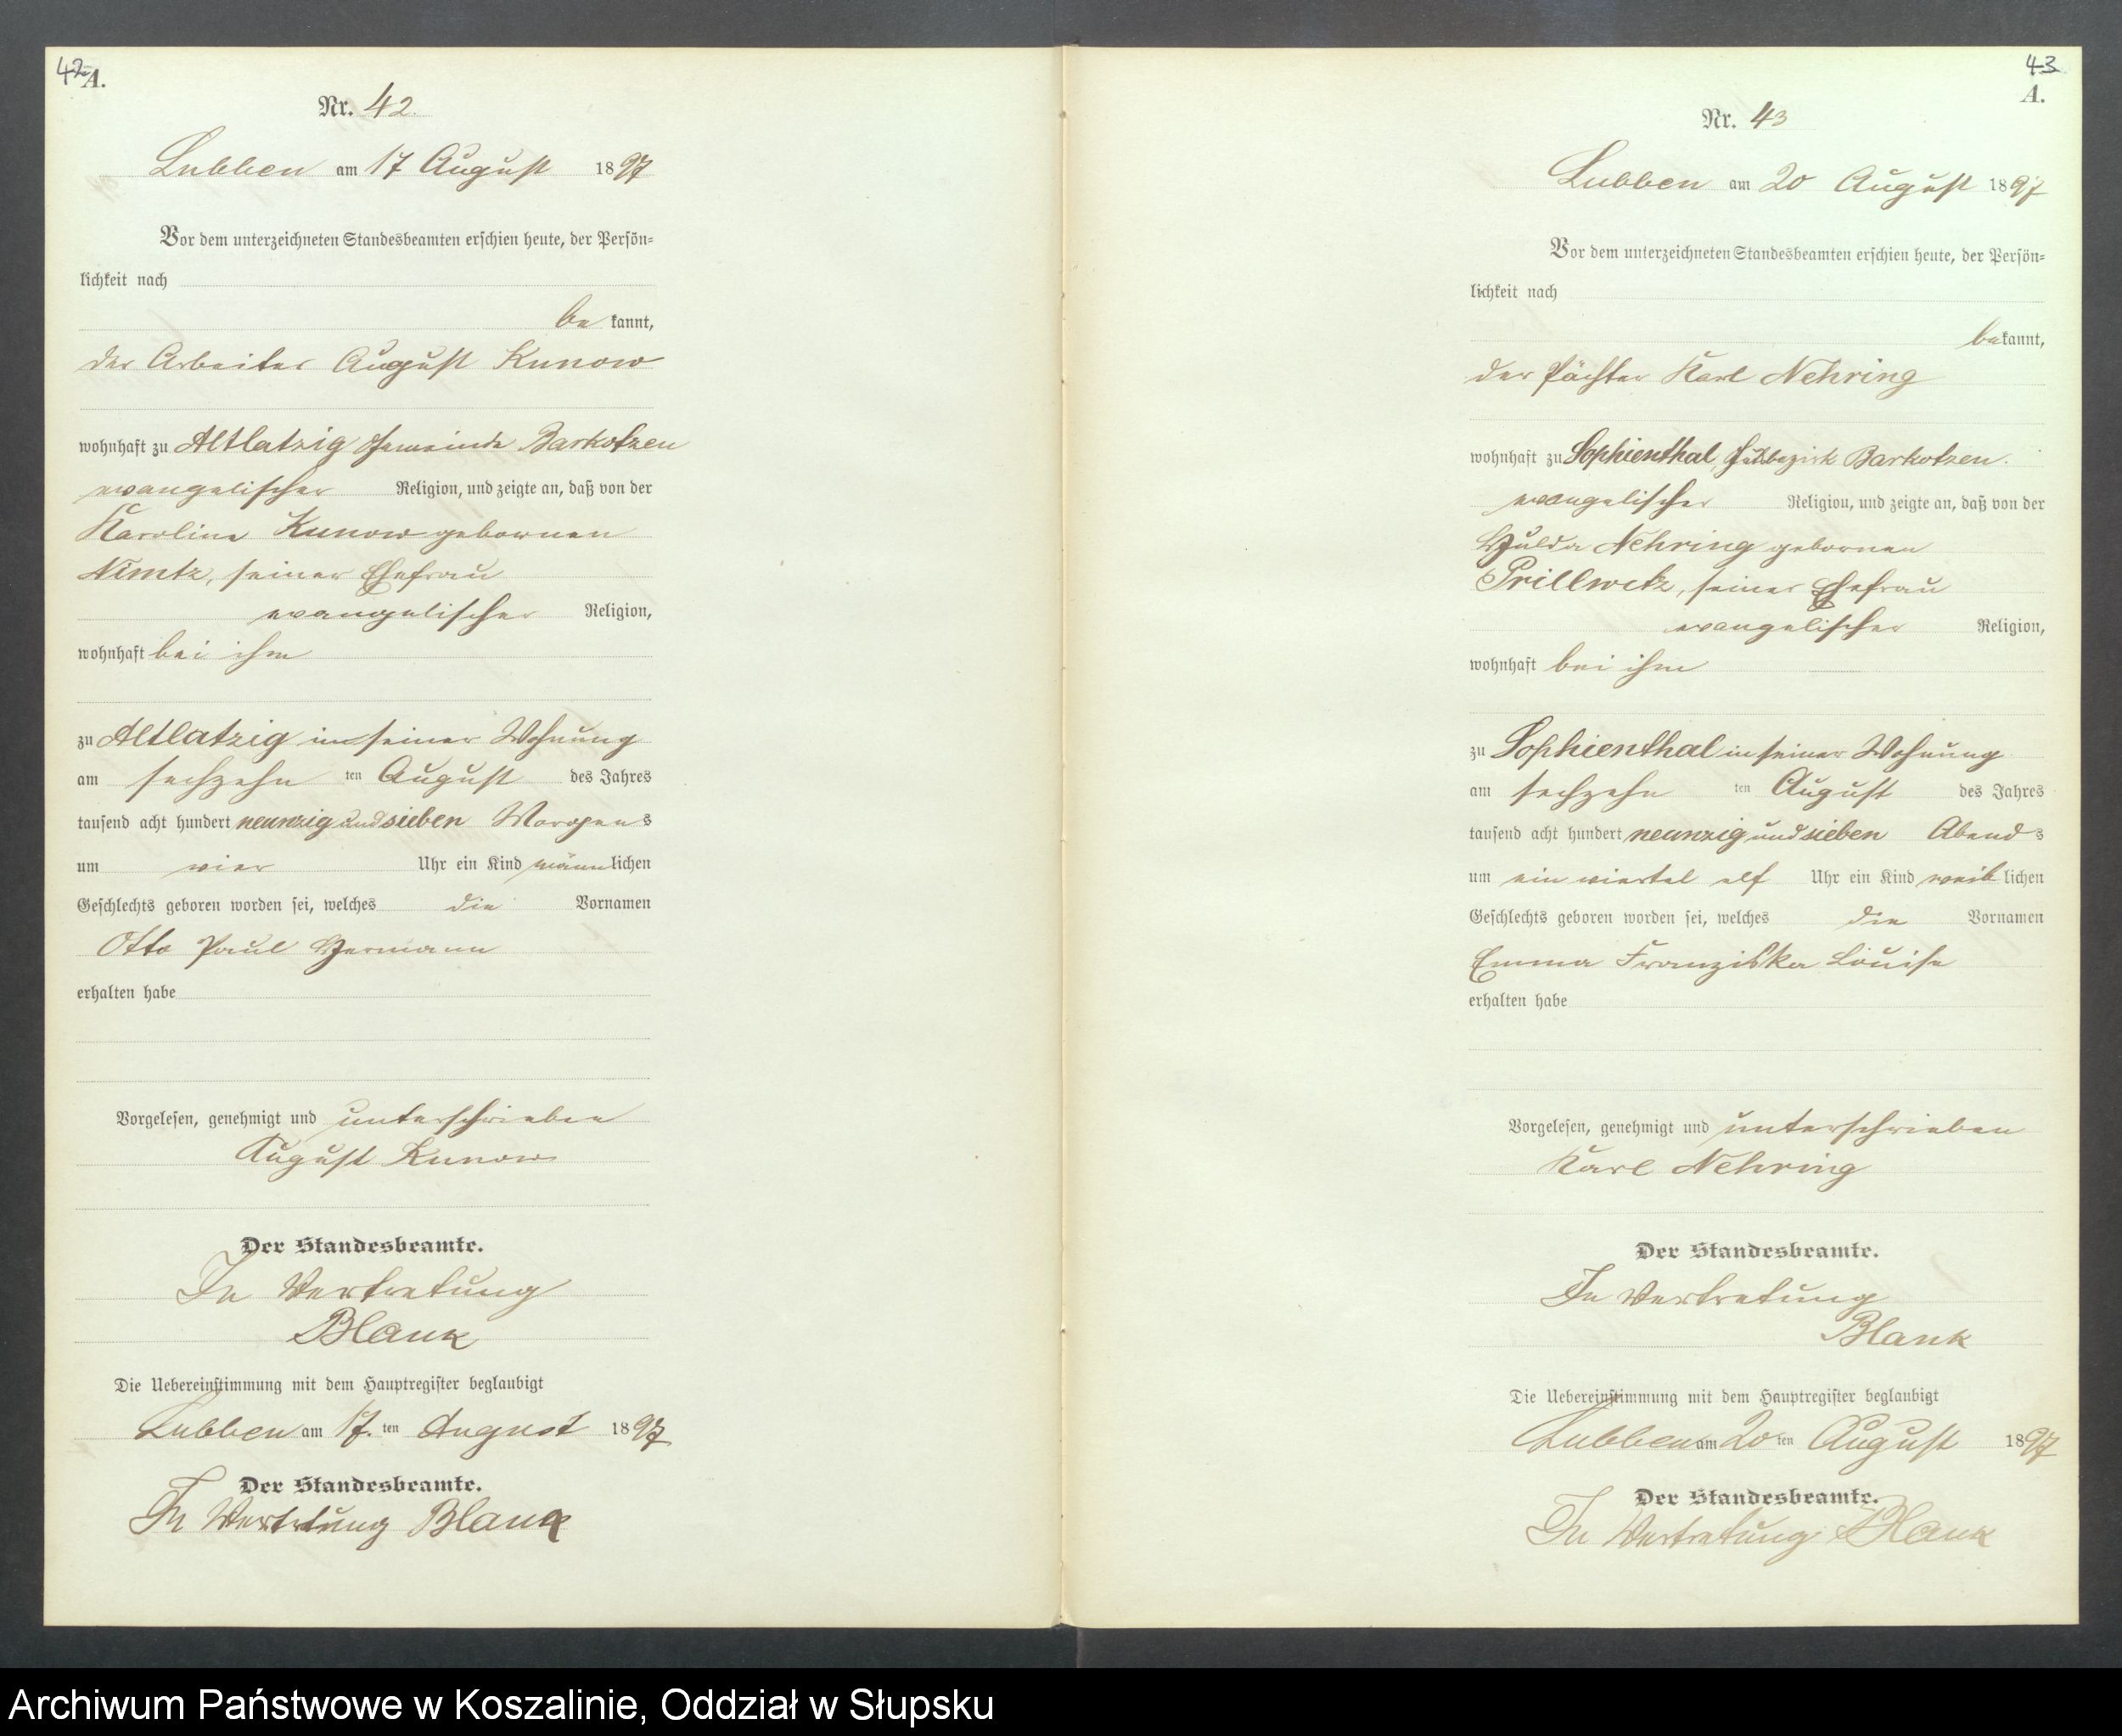 42
A.
Nr. 42.
Lubben am 17 August 1897
Vor dem unterzeichneten Standesbeamten erschien heute, der Persön=
lichkeit nach
be kannt,
der Arbeiter August Kunow
wohnhaft zu Altlatzig Gemeinde Barkotzen
evangelischer Religion, und zeigte an, daß von der
Karoline Kunow gebornen
Nimtz, seiner Ehefrau
evangelischer Religion,
wohnhaft bei ihm
zu Altlatzig in seiner Wohnung
am sechzehn ten August des Jahres
tausend acht hundert neunzig und sieben Morgens
um vier Uhr ein Kind männlichen
Geschlechts geboren worden sei, welches die Vornamen
Otto Paul Hermann
erhalten habe
Vorgelesen, genehmigt und unterschrieben
August Kunow
Der Standesbeamte.
In Vertretung
Blank
Die Uebereinstimmung mit dem Hauptregister beglaubigt
Lubben am 17. ten August 1897
Der Standesbeamte.
In Vertretung Blank
43
A.
Nr. 43
Lubben am 20 August 1897
Vor dem unterzeichneten Standesbeamten erschien heute, der Persön=
lichkeit nach
bekannt,
der Pächter Karl Nehring
wohnhaft zu Sophienthal, Gutsbezirk Barkotzen.
evangelischer Religion, und zeigte an, daß von der
Hulda Nehring gebornen
Prillwitz, seiner Ehefrau
evangelischer Religion,
wohnhaft bei ihm
zu Sophienthal in seiner Wohnung
am sechzehn ten August des Jahres
tausend acht hundert neunzig und sieben Abends
um ein viertel elf Uhr ein Kind weiblichen
Geschlechts geboren worden sei, welches die Vornamen
Emma Franziska Louise
erhalten habe
Vorgelesen, genehmigt und unterschrieben
Karl Nehring
Der Standesbeamte.
In Vertretung
Blank
Die Uebereinstimmung mit dem Hauptregister beglaubigt
Lubben am 20 ten August 1897
Der Standesbeamte.
In Vertretung Blank
Archiwum Państwowe w Koszalinie, Oddział w Słupsku